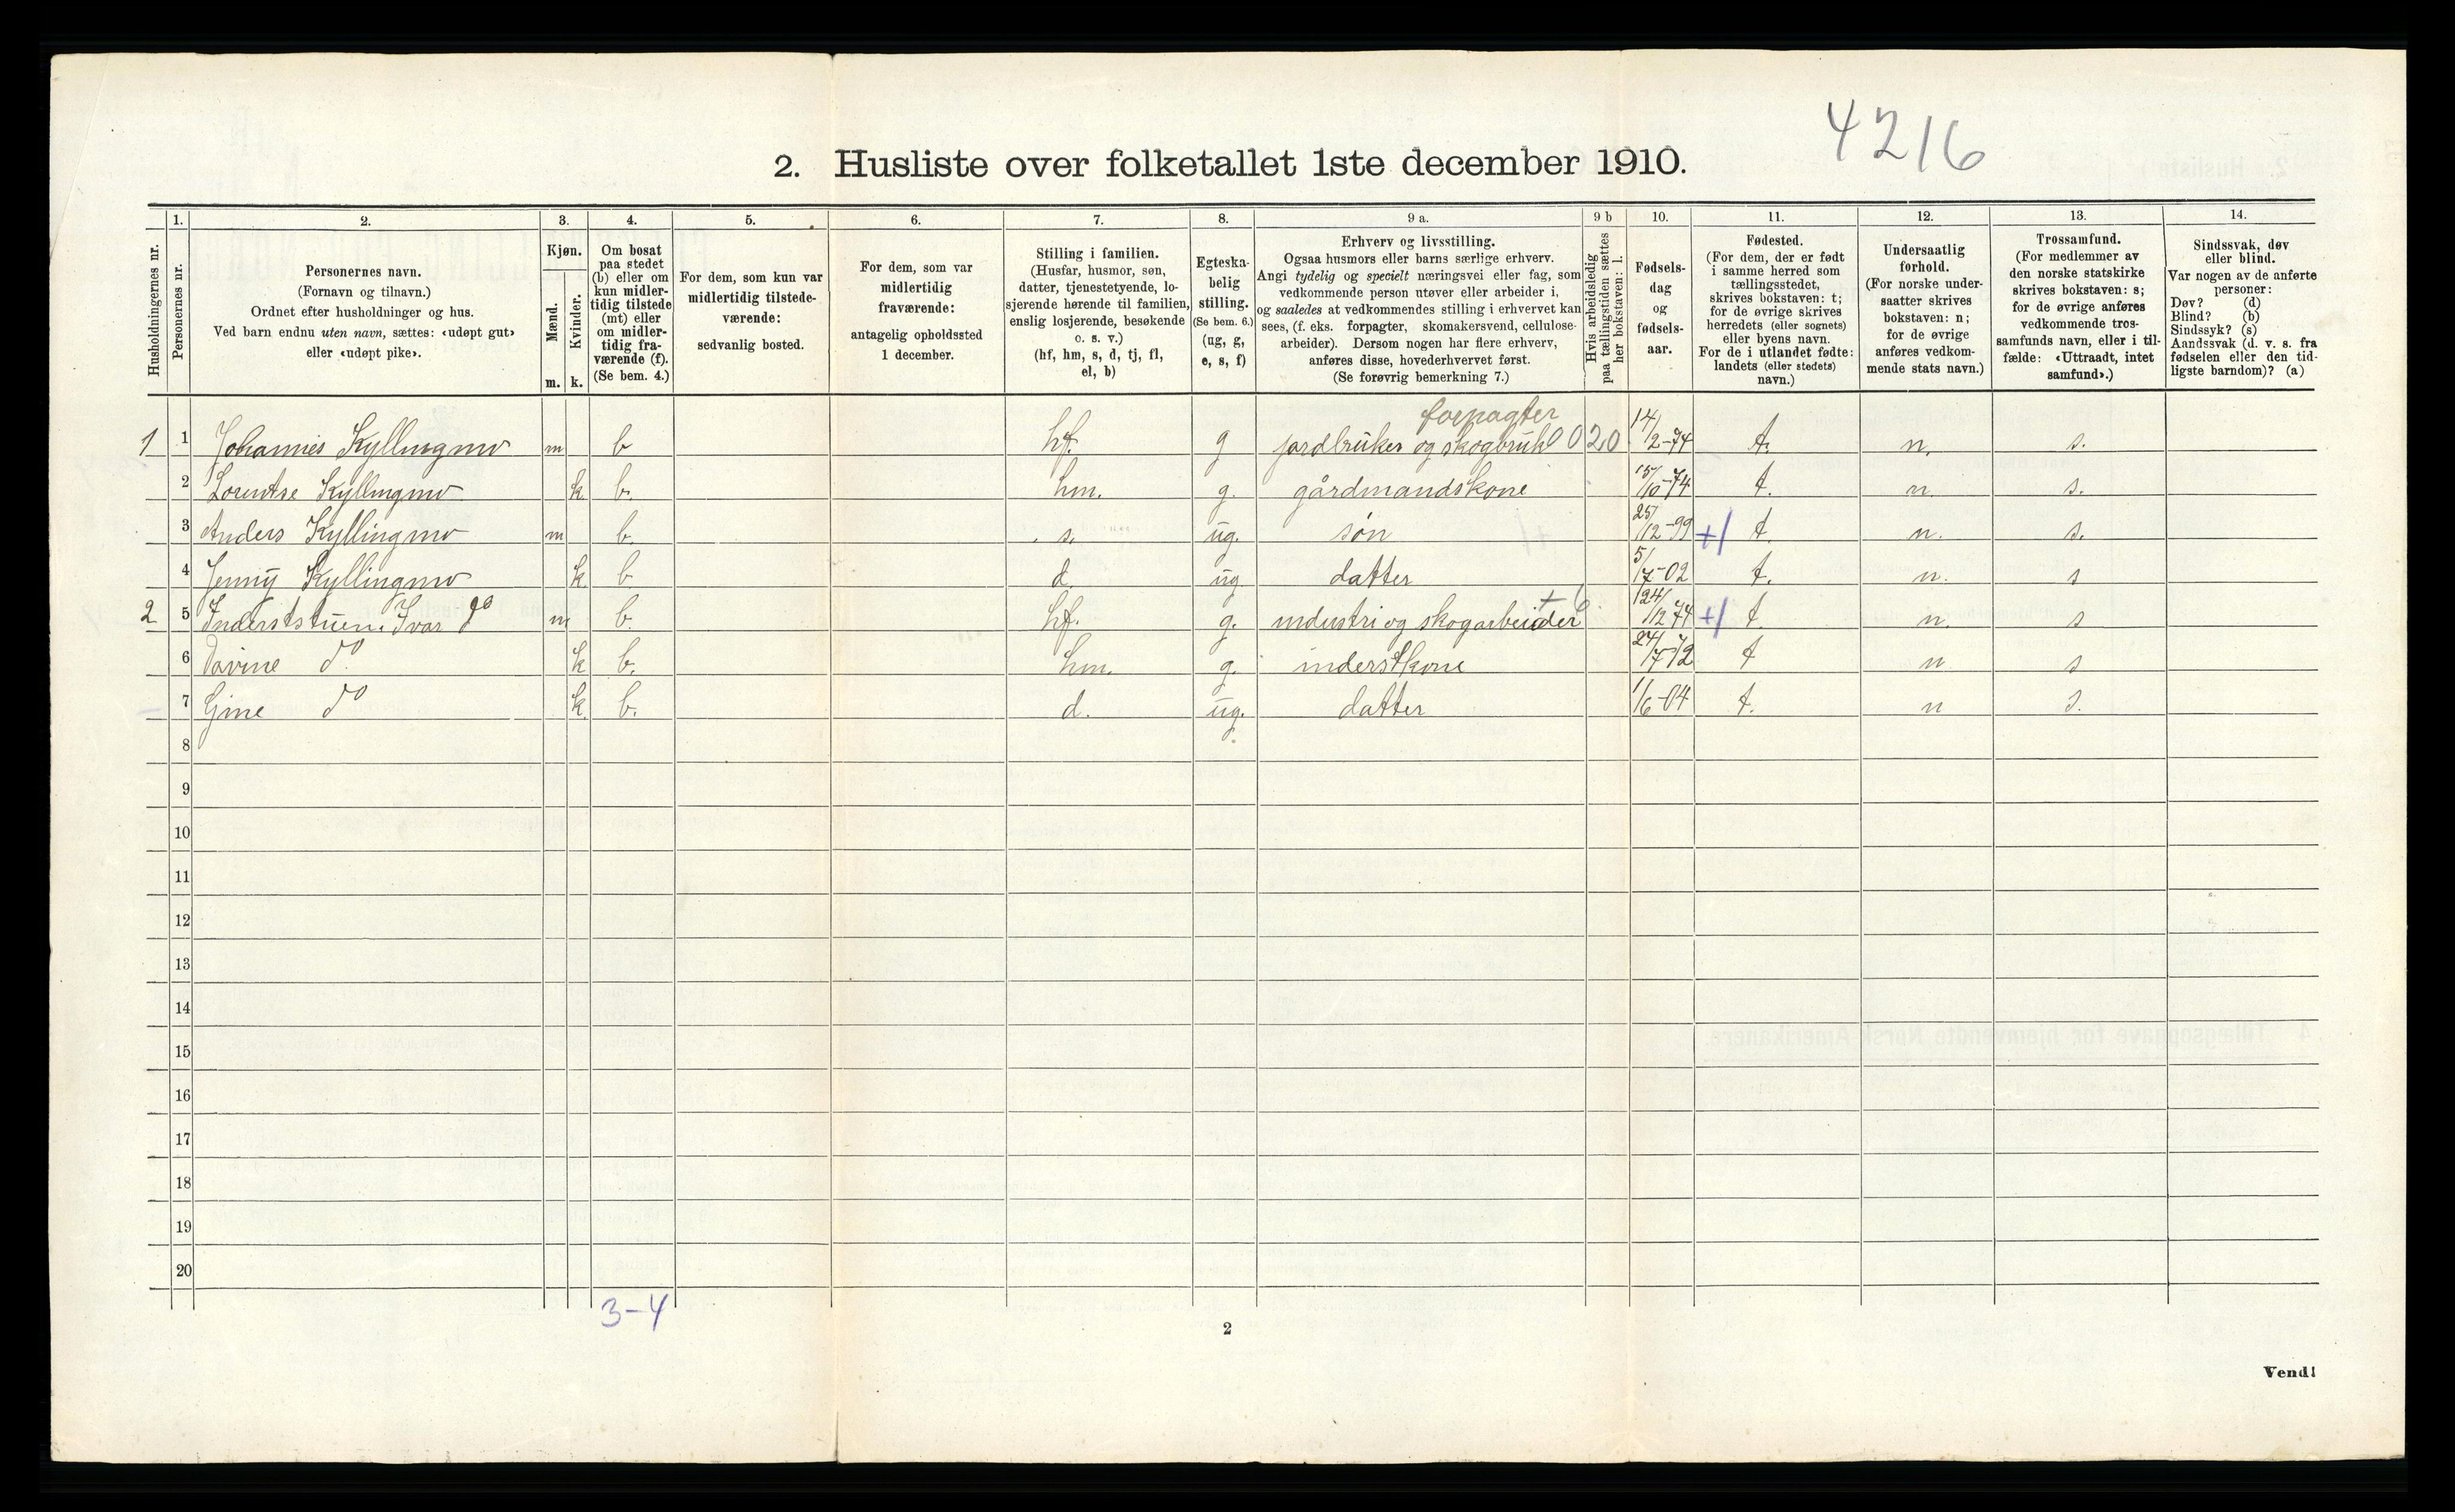 4216
2. Husliste over folketallet 1ste december 1910.
Husholdningernes nr.
1.
Personernes nr.
2.
Personernes navn.
(Fornavn og tilnavn.)
Ordnet efter husholdninger og hus.
Ved barn endnu uten navn, sættes: «udøpt gut»
eller «udøpt pike».
3.
Kjøn.
Mænd.
Kvinder.
m. k.
4.
Om bosat
paa stedet
(b) eller om
kun midler-
tidig tilstede
(mt) eller
om midler-
tidig fra-
værende (f).
(Se bem. 4.)
5.
For dem, som kun var
midlertidig tilstede-
værende:
sedvanlig bosted.
6.
For dem, som var
midlertidig
fraværende:
antagelig opholdssted
1 december.
7.
Stilling i familien.
(Husfar, husmor, søn,
datter, tjenestetyende, lo-
sjerende hørende til familien,
enslig losjerende, besøkende
o. s. v.)
(hf, hm, s, d, tj, fl,
el, b)
8.
Egteska-
belig
stilling.
(Se bem. 6.)
(ug, g,
e, s, f)
9 a.
Erhverv og livsstilling.
Ogsaa husmors eller barns særlige erhverv.
Angi tydelig og specielt næringsvei eller fag, som
vedkommende person utøver eller arbeider i,
og saaledes at vedkommendes stilling i erhvervet kan
sees, (f. eks. forpagter, skomakersvend, cellulose-
arbeider). Dersom nogen har flere erhverv,
anføres disse, hovederhvervet først.
(Se forøvrig bemerkning 7.)
9 b
Hvis arbeidsledig
paa tællingstiden sættes
her bokstaven: l.
10.
Fødsels-
dag
og
fødsels-
aar.
11.
Fødested.
(For dem, der er født
i samme herred som
tællingsstedet,
skrives bokstaven: t;
for de øvrige skrives
herredets (eller sognets)
eller byens navn.
For de i utlandet fødte:
landets (eller stedets)
navn.)
12.
Undersaatlig
forhold.
(For norske under-
saatter skrives
bokstaven: n;
for de øvrige
anføres vedkom-
mende stats navn.)
13.
Trossamfund.
(For medlemmer av
den norske statskirke
skrives bokstaven: s;
for de øvrige anføres
vedkommende tros-
samfunds navn, eller i til-
fælde: «Uttraadt, intet
samfund».)
14.
Sindssvak, døv
eller blind.
Var nogen av de anførte
personer:
Døv? (d)
Blind? (b)
Sindssyk? (s)
Aandssvak (d. v. s. fra
fødselen eller den tid-
ligste barndom)? (a)
forpagter
1 1 Johannes Kyllingmo m b hf. g jordbruker og skogbruk 0 020 14/2-74 t. n. s.
2 Lorentse Kyllingmo k b. hm. g. gårdmandskone 15/10-74 t. n. s.
3 Anders Kyllingmo m b. s. ug. søn 25/12-99 +/ t. n. s.
4 Jenny Kyllingmo k. b d. ug datter 5/7-02 t. n. s
2 5 Inderststuen. Ivar do m b. hf. g. industri og skogarbeider 24/12 74 +/ t n. s
6 do k b. hm. g. inderstkone 24/7-72 t n s
7 Gine do k b. d. ug. datter 1/6-04 t. n s.
8
9
10
11
12
13
14
15
16
17
18
19
20
3-4
2
Vend!